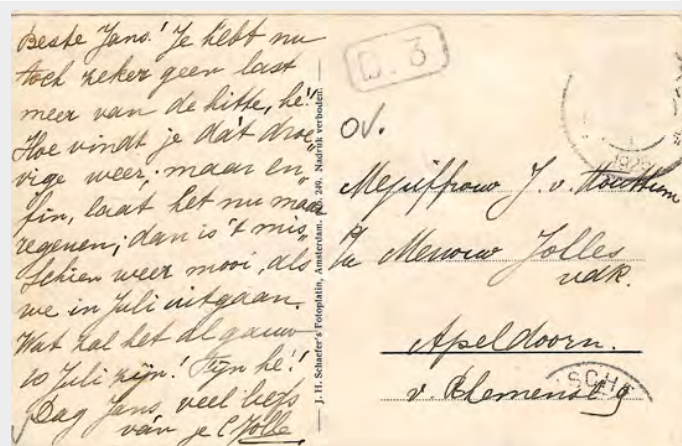 Beste Jans! Je hebt nu
toch zeker geen last
meer van de hitte, hè!
Hoe vindt je dàt droe-
vige weer; maar en-
fin, laat het nu maar
regenen; dan is 't mis-
schien weer mooi, als
we in Juli uitgaan.
Wat zal het al gauw
10 Juli zijn! Fijn he!
Dag Jans, veel liefs
van je C Jolle
J. H. Schaefer's Fotoplatin, Amsterdam. No. 249. Nadruk verboden.
D. 3
OV.
Mejuffrouw J. v. Houttum
p/a Mevrouw Jolles
vdk.
Apeldoorn.
v. 9
SCHE